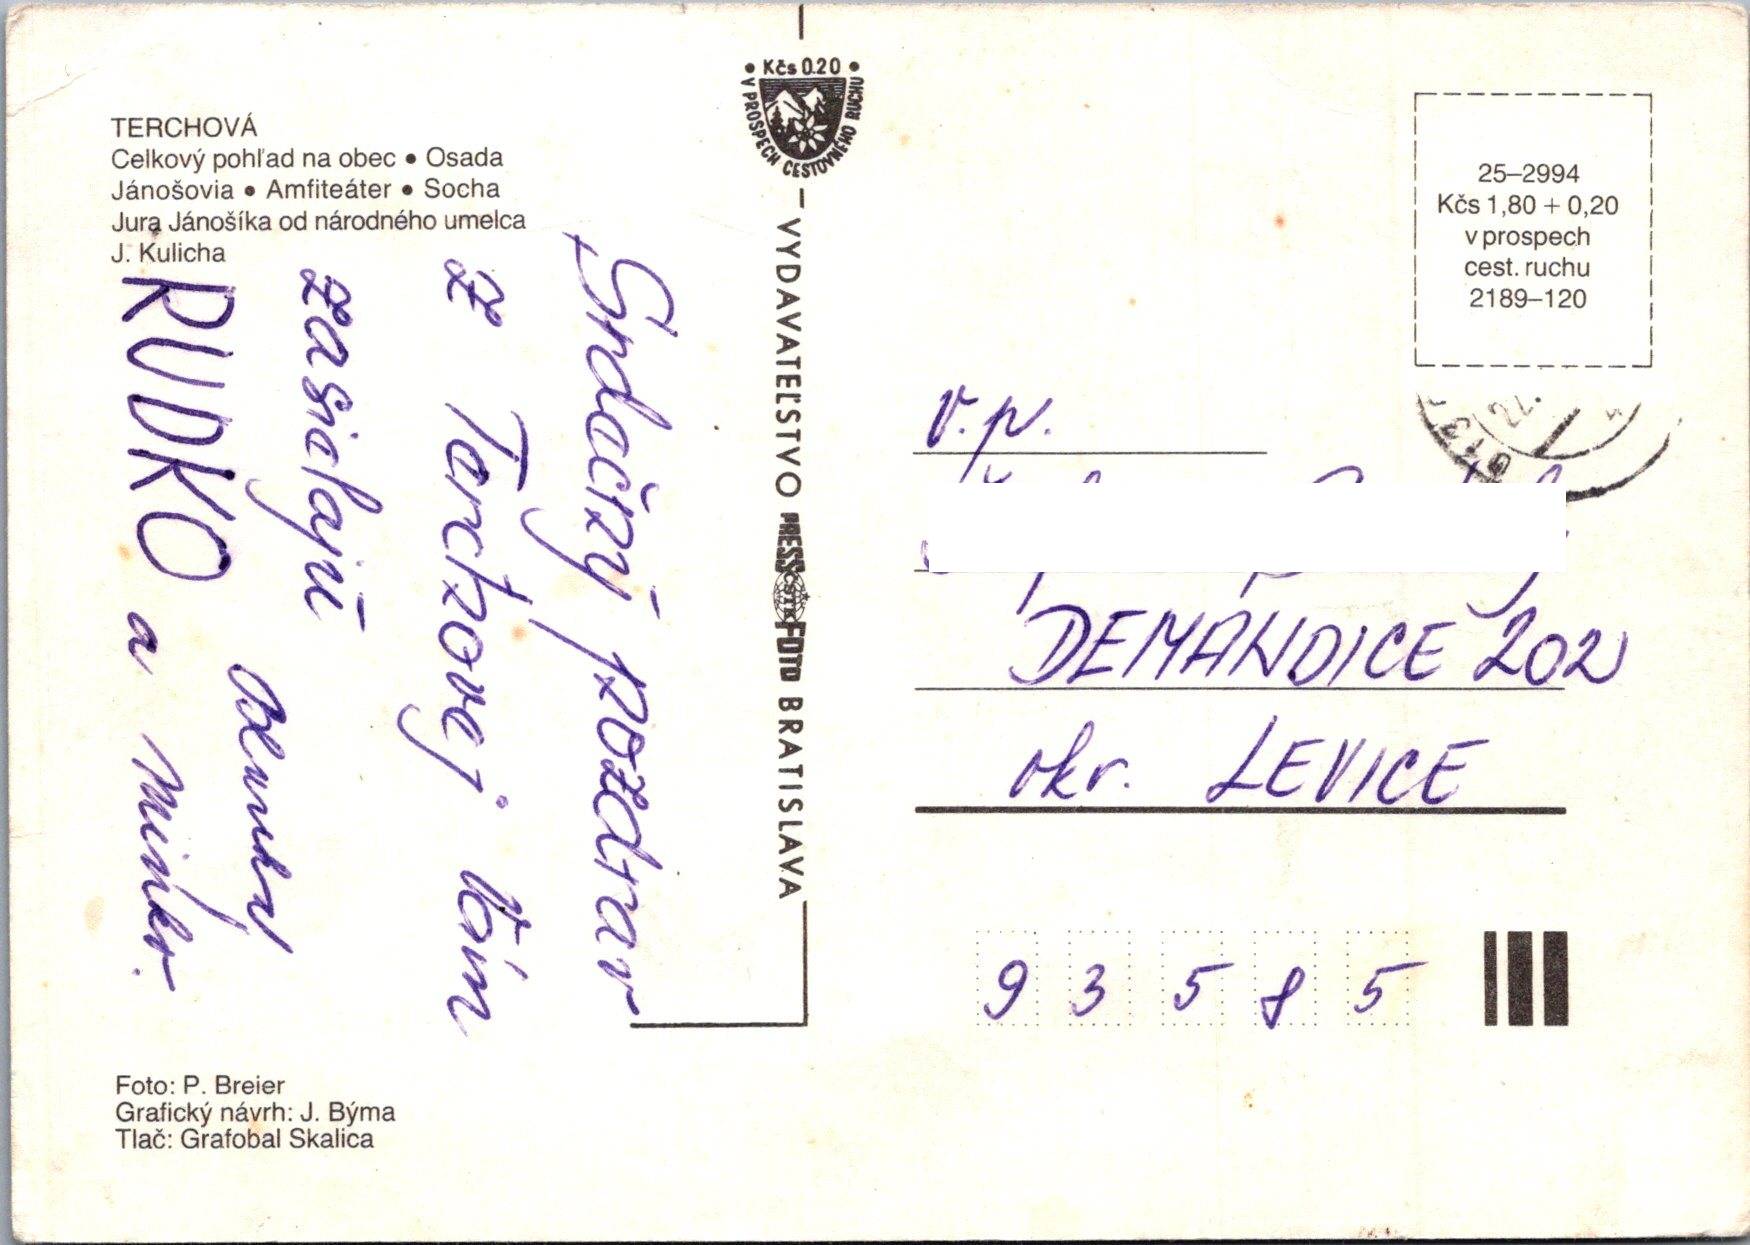 TERCHOVÁ
Celkový pohľad na obec • Osada
Jánošovia • Amfiteáter • Socha
Jura Jánošíka od národného umelca
J. Kulicha
Srdečný pozdrav
z Terchovej Vám
zasielajú
RUDKO a
Foto: P. Breier
Grafický návrh: J. Býma
Tlač: Grafobal Skalica
• Kčs 0.20 •
V PROSPECH CESTOVNÉHO RUCHU
VYDAVATEĽSTVO PRESSFOTO BRATISLAVA
ČSTK
25–2994
Kčs 1,80 + 0,20
v prospech
cest. ruchu
2189–120
V.p.
DEMANDICE 202
okr. LEVICE
93585